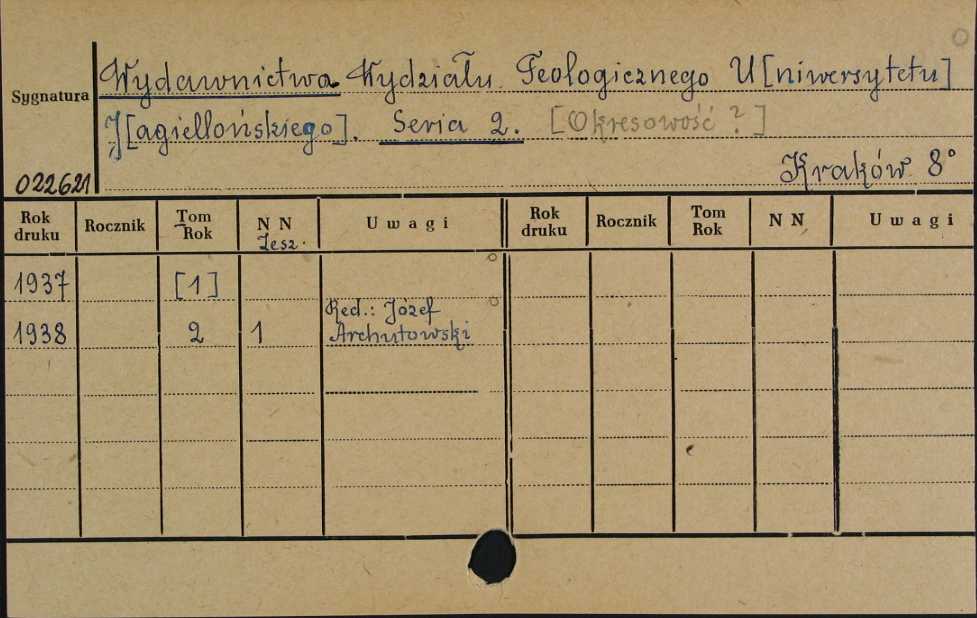 Wydawnictwa Wydziału Teologicznego U[niwersytetu]
Sygnatura
J[agiellońskiego]. Seria 2. [Okresowość?]
022621
Kraków 8°
Rok druku Rocznik Tom Rok NN Zesz. Uwagi Rok druku Rocznik Tom Rok NN Uwagi
1937 [1]
Red.: Józef
1938 2 1 Archutowski